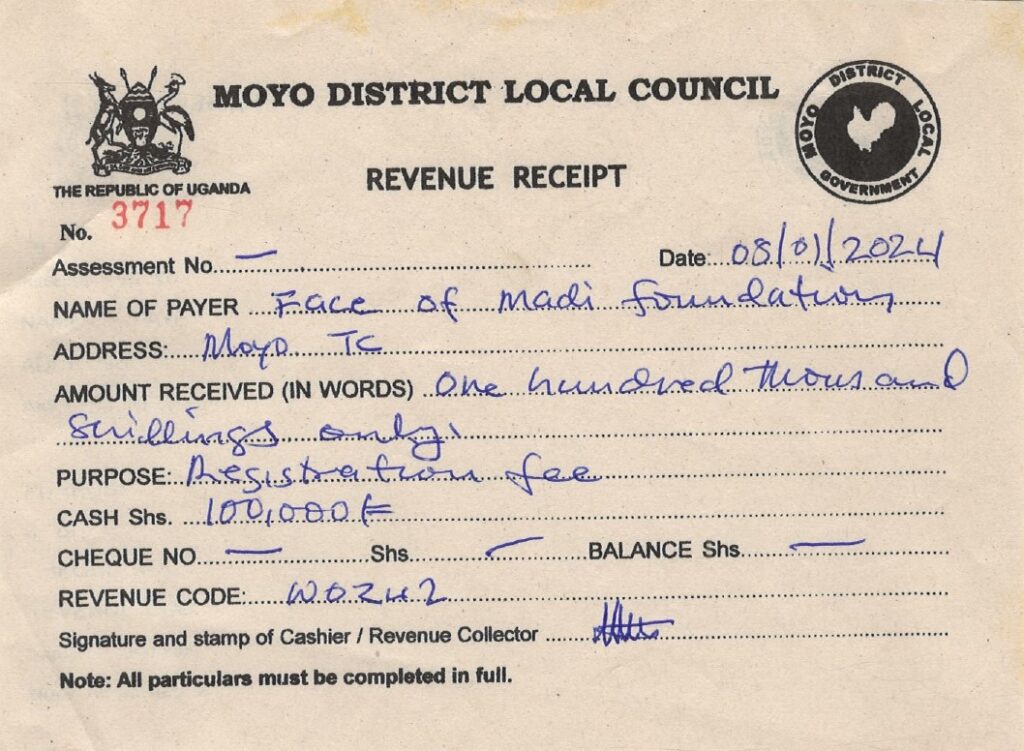 MOYO DISTRICT LOCAL COUNCIL
MOYO DISTRICT LOCAL GOVERNMENT
THE REPUBLIC OF UGANDA
REVENUE RECEIPT
No. 3717
Assessment No. — Date: 08/01/2024
NAME OF PAYER Face of Madi foundation
ADDRESS: Moyo TC
AMOUNT RECEIVED (IN WORDS) One hundred thousand
Shillings only.
PURPOSE: Registration fee
CASH Shs. 100,000/=
CHEQUE NO. — Shs — BALANCE Shs. —
REVENUE CODE:
Signature and stamp of Cashier / Revenue Collector
Note: All particulars must be completed in full.